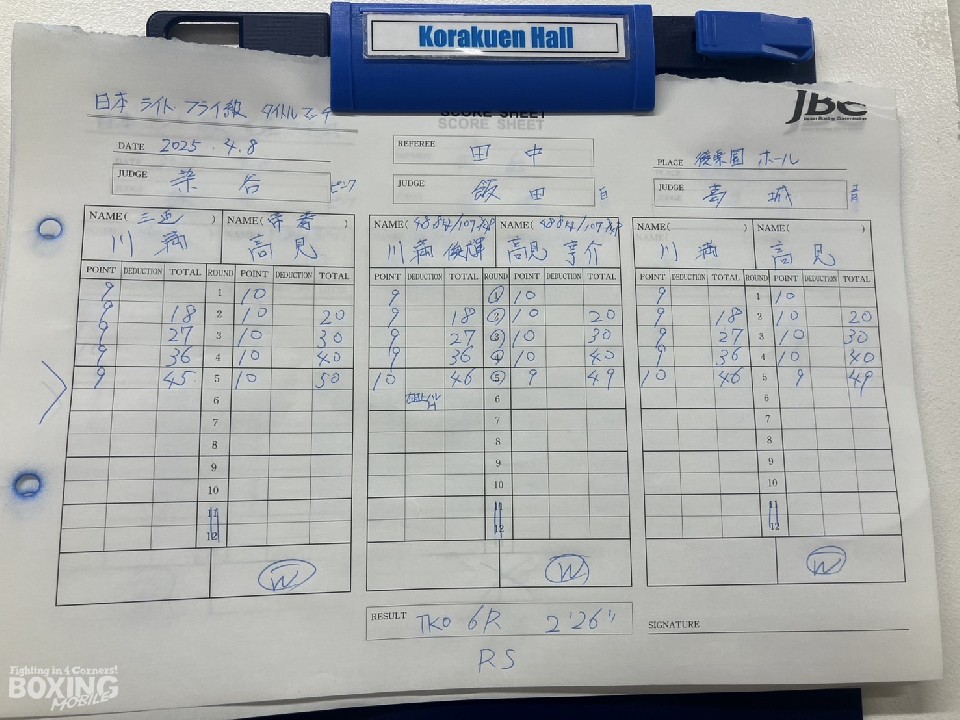 Korakuen Hall
日本 ライト・フライ級 タイトルマッチ
SCORE SHEET
SCORE SHEET
JBC
DATE 2025.4.8
REFEREE 田中
PLACE 後楽園ホール
JUDGE 染谷 ピンク
JUDGE 飯田 白
JUDGE 葛城 青
NAME( 三迫 ) NAME( 帝拳 )
川満 高見
NAME( 48.8kg/107 3/4P NAME( 48.8kg/107 3/4P
川満俊輝 高見亨介
NAME( ) NAME( )
川満 高見
POINT DEDUCTION TOTAL ROUND POINT DEDUCTION TOTAL
9 1 10
9 18 2 10 20
9 27 3 10 30
9 36 4 10 40
9 45 5 10 50
6
7
8
9
10
11
12
W
POINT DEDUCTION TOTAL ROUND POINT DEDUCTION TOTAL
9 1 10
9 18 2 10 20
9 27 3 10 30
9 36 4 10 40
10 46 5 9 49
6
7
8
9
10
11
12
W
POINT DEDUCTION TOTAL ROUND POINT DEDUCTION TOTAL
9 1 10
9 18 2 10 20
9 27 3 10 30
9 36 4 10 40
10 46 5 9 49
6
7
8
9
10
11
12
W
RESULT TKO 6R 2'26"
RS
SIGNATURE
Fighting in 4 Corners!
BOXING
MOBILE